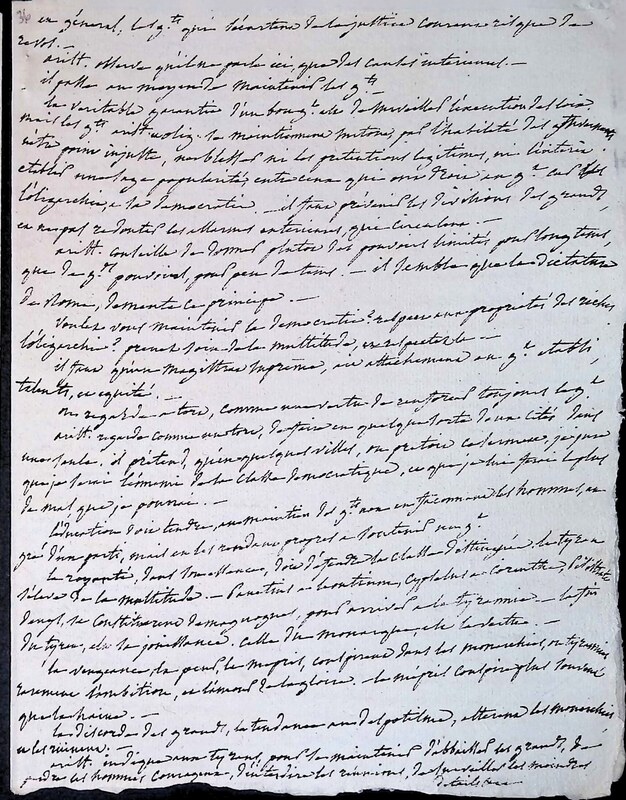 en général, les g.ts qui s'écartent de la justice courent risque de
revol. —
arist. observe qu'il ne parle ici, que des causes intérieures. —
il passe au moyen de maintenir les g.ts
la véritable garantie d'un bon g.t est de surveiller l'exécution des loix
mais les g.ts arist. se maintiennent par l'habileté des
n'être point injuste, ne blesser ni les prétentions légitimes, ni l'intérêt
établir une sage popularité, entre ceux qui ont droit au g.t car
l'oligarchie, a sa démocratie. — il faut prévenir les divisions des grands,
et ne pas redouter les allarmes extérieures, que —
arist. conseille de donner plutôt des pouvoirs limités, pour longtems,
que de g.ds pouvoirs, pour peu de tems. — il semble que la dictature
de Rome, démente ce principe. —
Voulez vous maintenir la démocratie? respect aux propriétés des riches
l'oligarchie? prenez soin de la multitude, et respectez la —
il faut qu'un magistrat suprême, ait attachement au g.t établi,
talents, et équité. —
on regarde a tort, comme une vertu de renforcer toujours le g.t
arist. regarde comme un tort, de faire en quelque sorte deux cités dans
une seule. il prétend, qu'en quelques villes, on prêtoit ce serment, je jure
que je serai l'ennemi de la classe démocratique, et que je lui ferai le plus
de mal que je pourrai. —
l'éducation doit tendre, au maintien des g.ts non en façonnant les hommes, au
gré d'un parti, mais en les rendant propres a soutenir un g.t
la royauté, dans son essence, doit défendre la classe distinguée. le tyran
s'élève de la multitude. — Panetius a Leontium, Cypselus a Corinthe, Pisistrate
se constituerent démagogues, pour arriver a la tyrannie — le but
du tyran, est la jouissance. celle du monarque est la vertu. —
la vengeance, la peur, le mépris, conspirent dans les monarchies, ou tyrannies
rarement l'ambition, et l'amour de la gloire. le mépris conspire plus souvent
que la haine. —
la discorde des grands, la tendance au despotisme, altèrent les monarchies
et les ruinent. —
arist. indique aux tyrans, pour se maintenir d'abaisser les grands, de
perdre les hommes courageux, d'interdire les réunions, de surveiller les moindres
détails